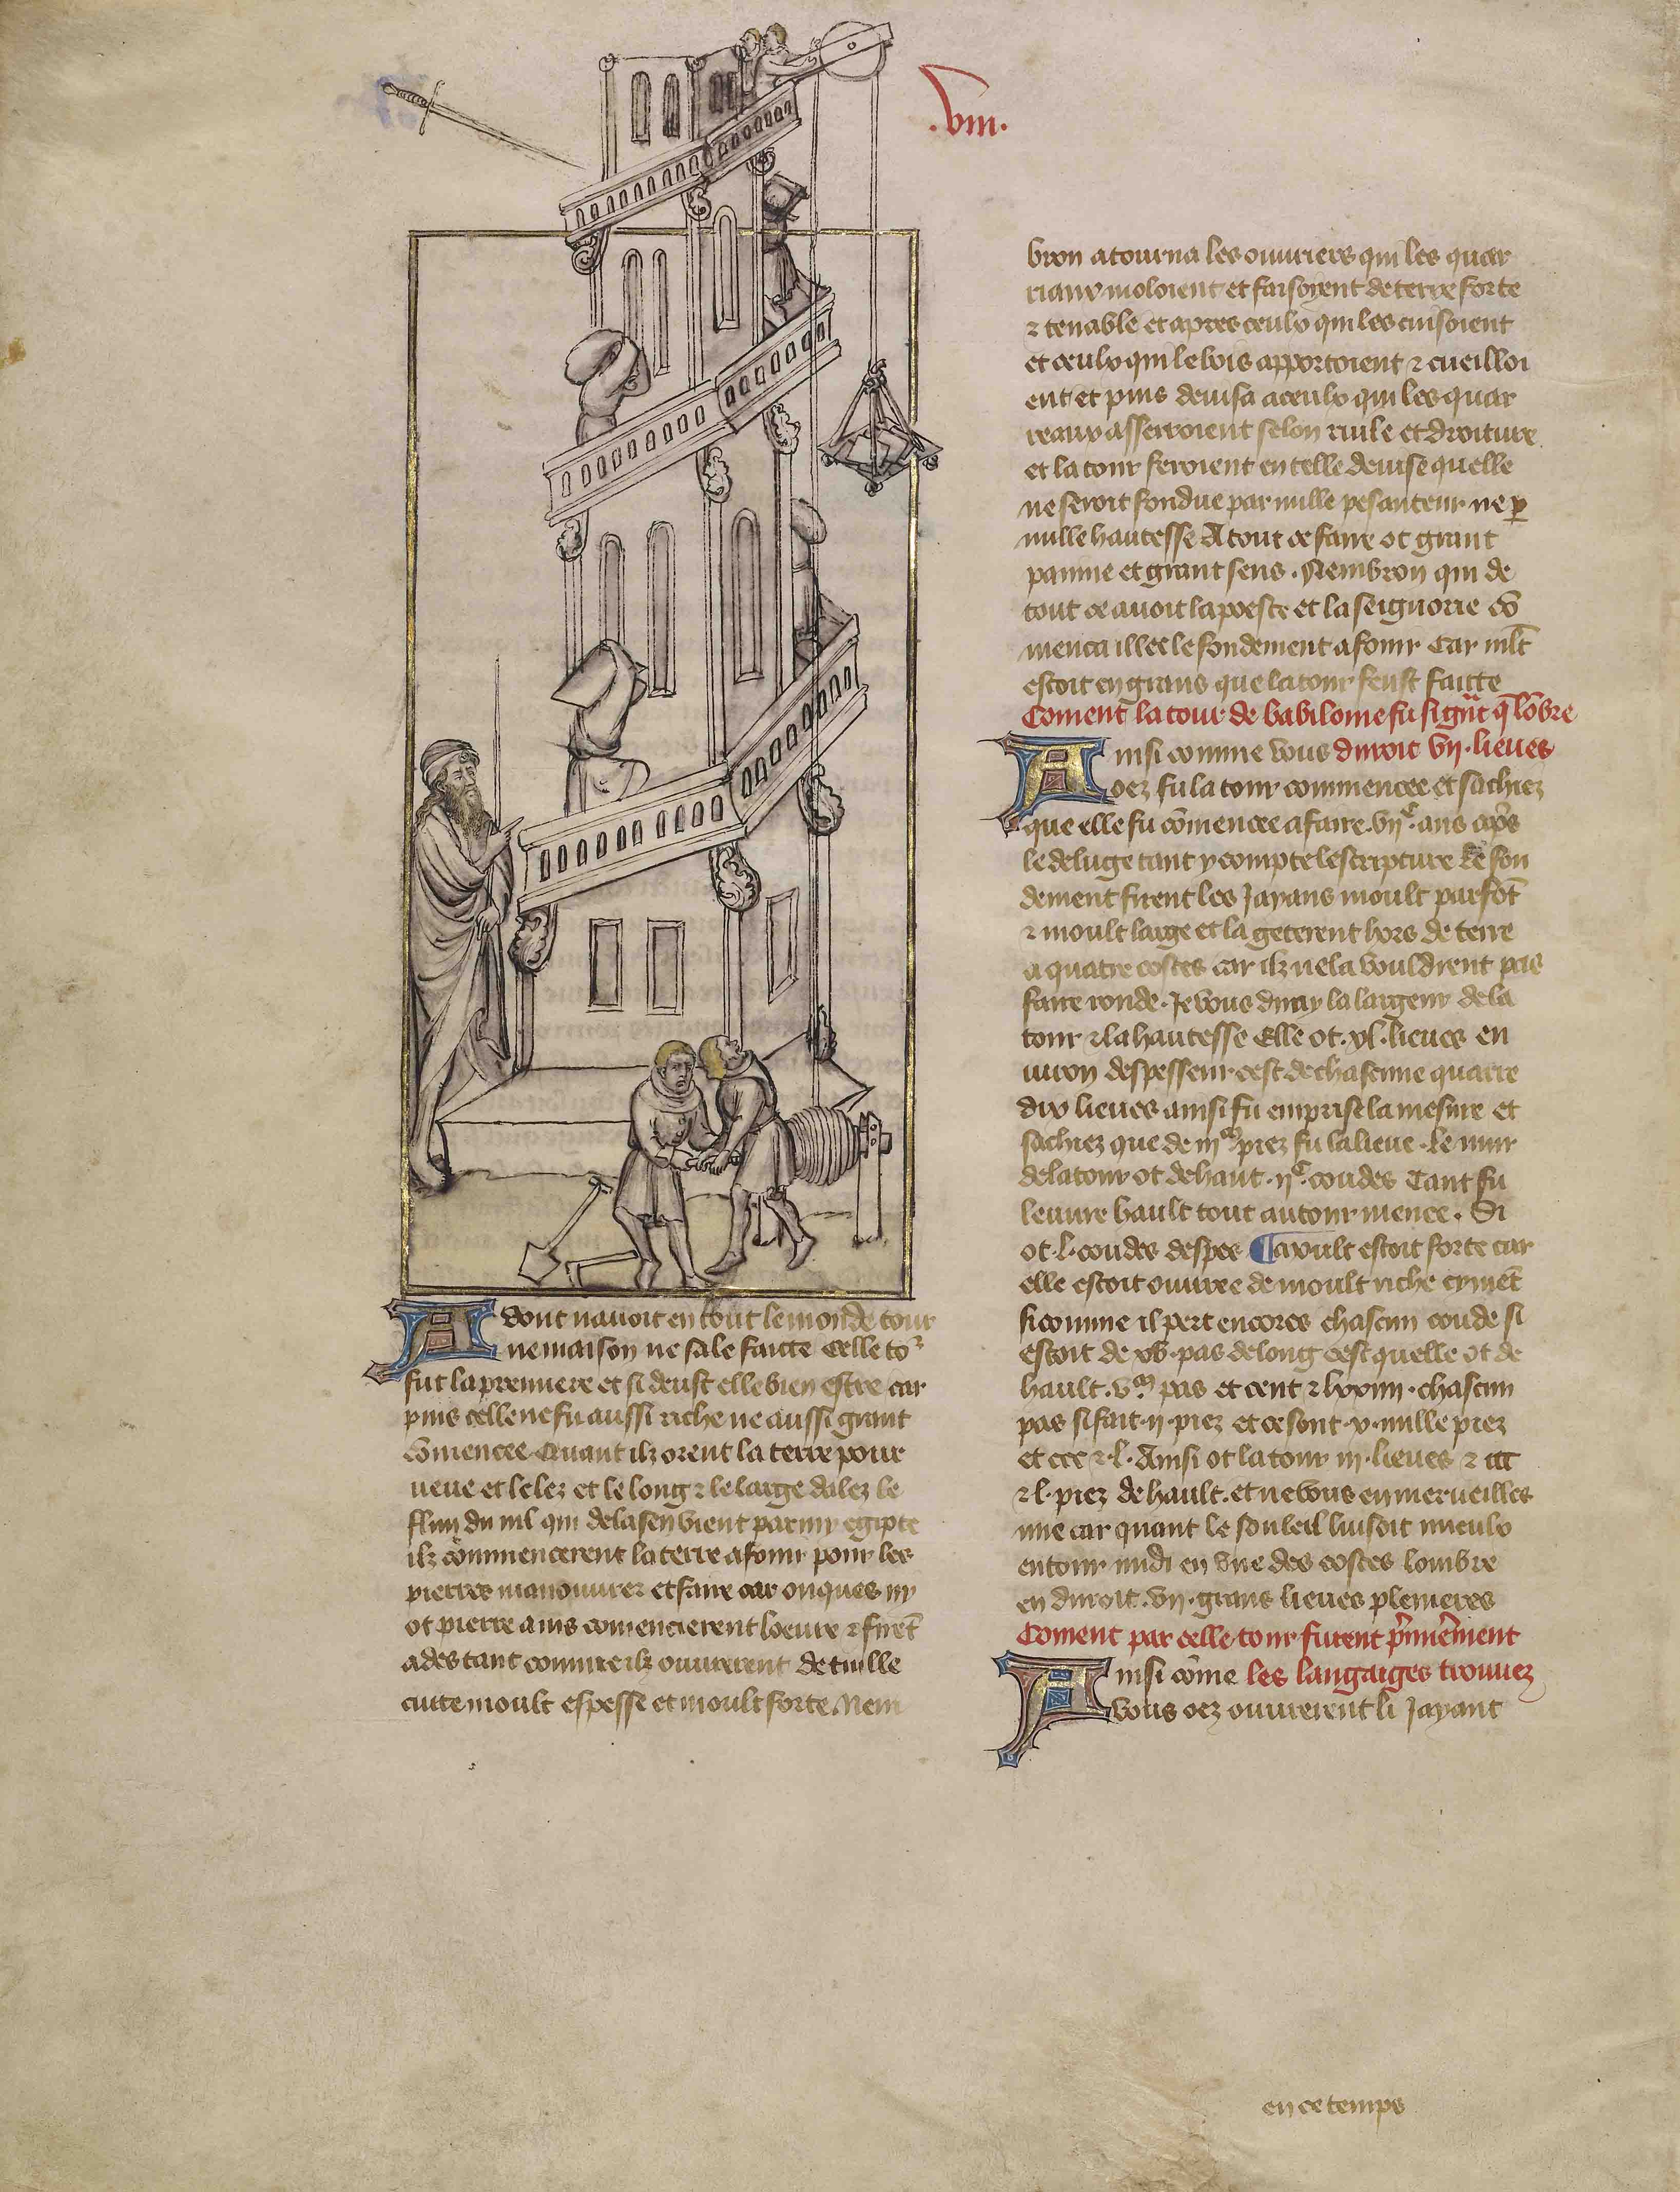 .viii.
Adont navoit en tout le monde tour
ne maison ne sale faicte Celle to²
fut la premiere et si deust elle bien estre car
puis celle ne fu aussi riche ne aussi grant
9mencee Quant ilz orent la terre pour
veue et le lez et le long ⁊ le large dalez le
flun du nil qui de la sen vient parmy egipte
ilz cōmencerent la terre a fouir pour les
pierres manouvrer et faire car onques ny
ot pierre ains comencierent loeuvre ⁊ firēt
ades tant comme ilz ouvrerent de tuille
cuite moult espesse et moult forte Nem
bron atourna les ouvriers qui les quar
riaux moloient et faisoyent de terre forte
⁊ tenable et apres ceulx qui les cuisoient
et ceulx qui le bois apportoient ⁊ cueilloi
ent et puis devisa a ceulx qui les quar
reaux asserroient selon riule et droiture
et la tour feroient en telle devise quelle
ne seroit fondue par nulle pesanteur ne ꝑ
nulle hautesse A tout ce faire ot grant
painne et grant sens . Nembron qui de
tout ce avoit la poeste et la seignorie 9
menca illec le fondement a fouir Car mlt̄
estoit en grans que la tour feust faicte
Coment la tour de babiloine fu si grāt q̄ lōbre
Ainsi comme vous duroit vij . lieues
oez fu la tour commencee et sachiez
que elle fu cōmencee a faire . vijᶜ . ans aps̄
le deluge tant y compte lescripture Le fon
dement firent les Jayans moult parfōt
⁊ moult large et la geterent hors de terre
a quatre costes car ilz ne la vouldrent pas
faire ronde . Je vous diray la largeur de la
tour ⁊ la hautesse Elle ot . xl . lieues en
viron despesseur cest de chascune quarre
dix lieues ainsi fu emprise la mesure et
sachiez que de iijᵐ piez fu la lieue . Le mur
de la tour ot de haut . ijᶜ . coudes Tant fu
leuvre hault tout autour menee . Si
ot . l . coudes despes ¶ Moult estoit forte car
elle estoit ouvree de moult riche cymēt
si comme il pert encores chascun coude si
estoit de xv . pas de long cest quelle ot de
hault . vᵐ pas et cent ⁊ lxxiiii . chascun
pas si fait . ij . piez et ce sont . x . mille piez
et ccc ⁊ . l . Ainsi ot la tour iij . lieues ⁊ ccc
⁊ l . piez de hault . et ne vous en merveilles
mie car quant le souleil luisoit mieulx
entour midi en une des costes lombre
en duroit . vij . grans lieues plenieres
Coment par celle tour furent p̄mierement
Ainsi cōme les langaiges trouvez
vous oez ouvrerent li Jayant
en ce temps